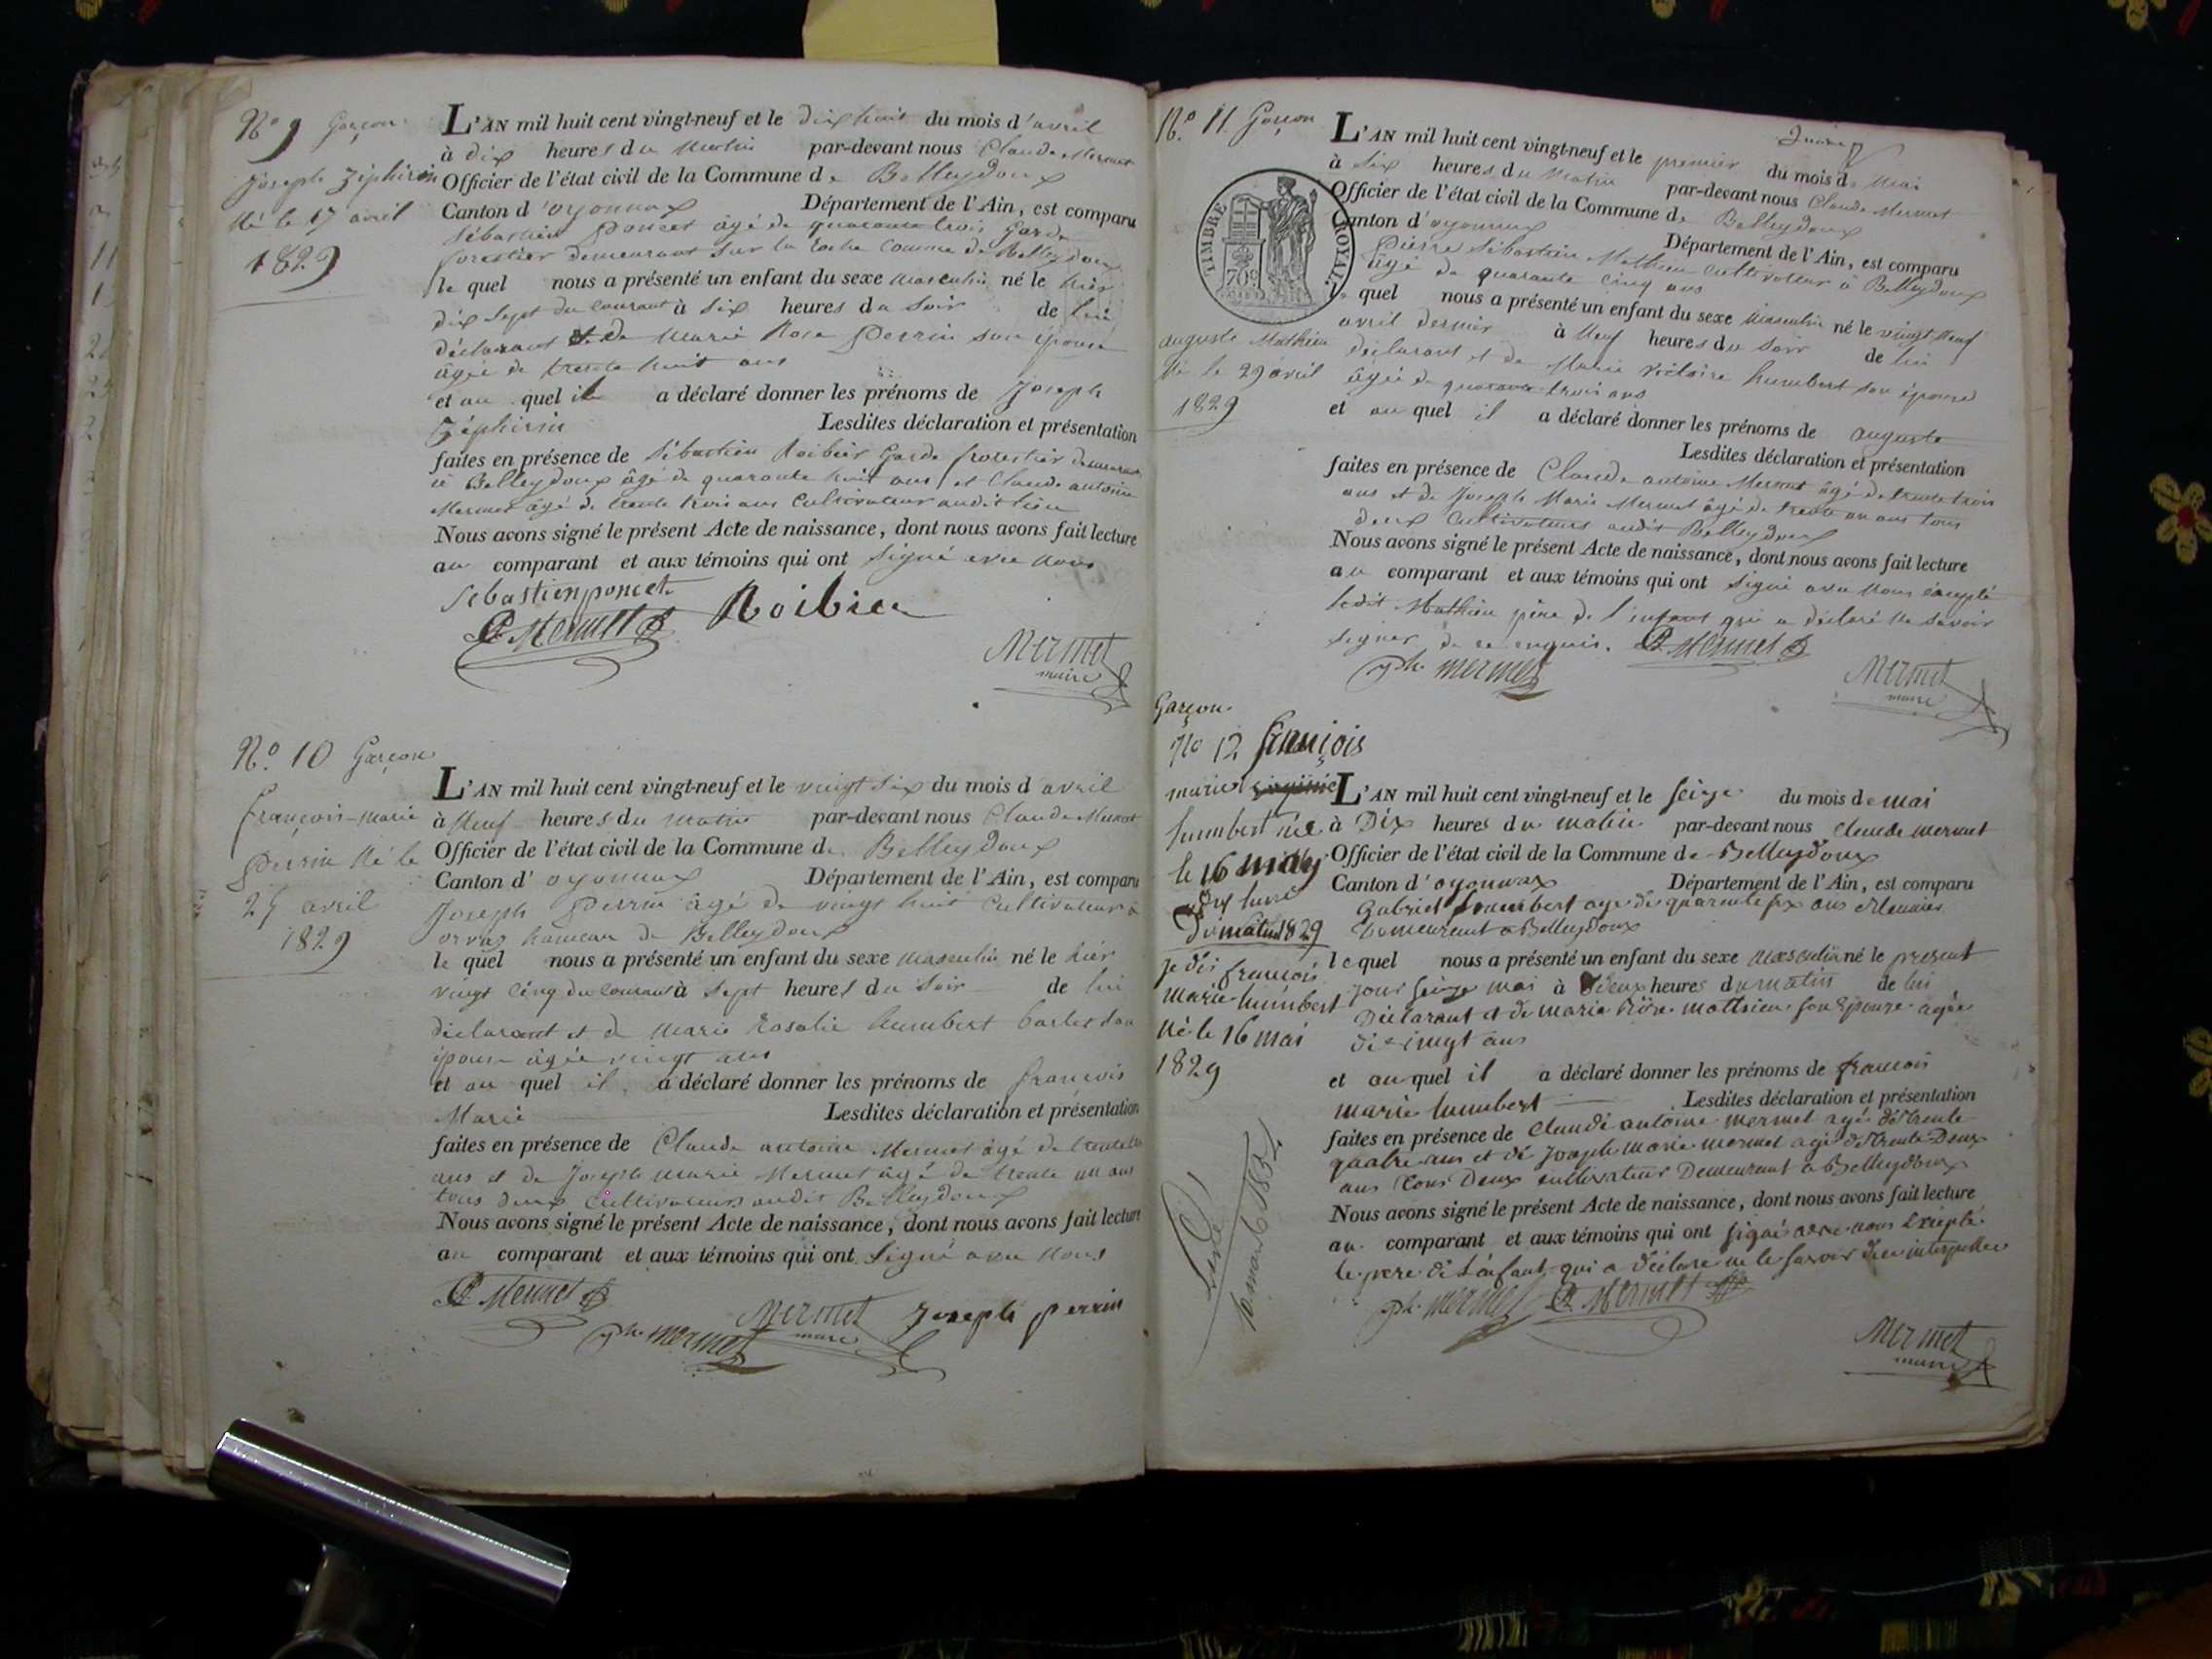 N° 9 Garçon
Joseph Zéphirin
Né le 17 avril
1829
L'AN mil huit cent vingt-neuf et le dix huit du mois d'avril
à dix heures du Matin par-devant nous Claude Mermet
Officier de l'état civil de la Commune de Belleydoux
Canton d'oyonnax Département de l'Ain, est comparu
Sébastien Poncet âgé de quarante trois Garde
forestier demeurant sur la roche Commune de Belleydoux
le quel nous a présenté un enfant du sexe masculin né le hier
dix Sept du courant à six heures du Soir de lui
déclarant et de Marie Rose Perrin son épouse
âgée de trente huit ans
et au quel il a déclaré donner les prénoms de Joseph
Zéphirin Lesdites déclaration et présentation
faites en présence de Sébastien Roibier Garde forestier demeurant
à Belleydoux âgé de quarante huit ans et Claude antoine
Mermet âgé de trente trois ans Cultivateur audit lieu
Nous avons signé le présent Acte de naissance, dont nous avons fait lecture
au comparant et aux témoins qui ont Signé avec Nous
Sebastien poncet
Mermet Roibier
Mermet
maire
N° 10 Garçon
françois-marie
Perrin Né le
25 avril
1829
L'AN mil huit cent vingt-neuf et le vingt six du mois d avril
à Neuf heures du Matin par-devant nous Claude Mermet
Officier de l'état civil de la Commune de Belleydoux
Canton d'oyonnax Département de l'Ain, est comparu
Joseph Perrin âgé de vingt huit Cultivateur à
orvaz hameau de Belleydoux
le quel nous a présenté un enfant du sexe masculin né le hier
vingt Cinq du Courant à Sept heures du Soir de lui
déclarant et de Marie Rosalie humbert
épouse âgée vingt ans
et au quel il a déclaré donner les prénoms de françois
Marie Lesdites déclaration et présentation
faites en présence de Claude antoine Mermet âgé de
ans et de Joseph Marie Mermet âgé de trente un ans
tous deux Cultivateurs audit Belleydoux
Nous avons signé le présent Acte de naissance, dont nous avons fait lecture
au comparant et aux témoins qui ont Signé avec Nous
Mermet
Mermet Joseph perrin
maire
jph. mermet
N° 11 Garçon
TIMBRE ROYAL
70c
auguste Mathieu
Né le 29 avril
1829
L'AN mil huit cent vingt-neuf et le premier du mois de Mai
à Six heures du Matin par-devant nous Claude Mermet
Officier de l'état civil de la Commune de Belleydoux
Canton d'oyonnax Département de l'Ain, est comparu
Pierre Sébastien Mathieu Cultivateur à Belleydoux
âgé de quarante Cinq ans
le quel nous a présenté un enfant du sexe Masculin né le vingt Neuf
avril dernier à Neuf heures du Soir de lui
déclarant et de Marie Victoire humbert son épouse
âgée de quarante trois ans
et au quel il a déclaré donner les prénoms de auguste
Lesdites déclaration et présentation
faites en présence de Claude antoine Mermet âgé de trente trois
ans et de Joseph Marie Mermet âgé de trente un ans tous
deux Cultivateurs audit Belleydoux
Nous avons signé le présent Acte de naissance, dont nous avons fait lecture
au comparant et aux témoins qui ont Signé avec Nous excepté
ledit Mathieu père de l'enfant qui a déclaré Ne Savoir
signer de ce enquis. Mermet
jph. mermet
Mermet
maire
Garçon
No 12 françois
marie
humbert né
le 16 may
dix heure
du matin 1829
je dis françois
Marie humbert
Né le 16 mai
1829
L'AN mil huit cent vingt-neuf et le seize du mois de mai
à Dix heures du matin par-devant nous claude mermet
Officier de l'état civil de la Commune de Belleydoux
Canton d'oyonnax Département de l'Ain, est comparu
Gabriel humbert age de quarante six ans
Demeurant a Belleydoux
le quel nous a présenté un enfant du sexe masculin né le present
jour seize mai à Deux heures du matin de lui
Déclarant et de marie Rose mathieu son Epouze agée
de vingt ans
et au quel il a déclaré donner les prénoms de francois
marie humbert Lesdites déclaration et présentation
faites en présence de claude antoine mermet agé de trente
quatre ans et de joseph marie mermet agé de trente Deux
ans tous Deux cultivateur Demeurant a Belleydoux
Nous avons signé le présent Acte de naissance, dont nous avons fait lecture
au comparant et aux témoins qui ont signé avec nous Excepté
le pere de L'enfant qui a déclaré ne le savoir
jph. mermet Mermet
Mermet
maire